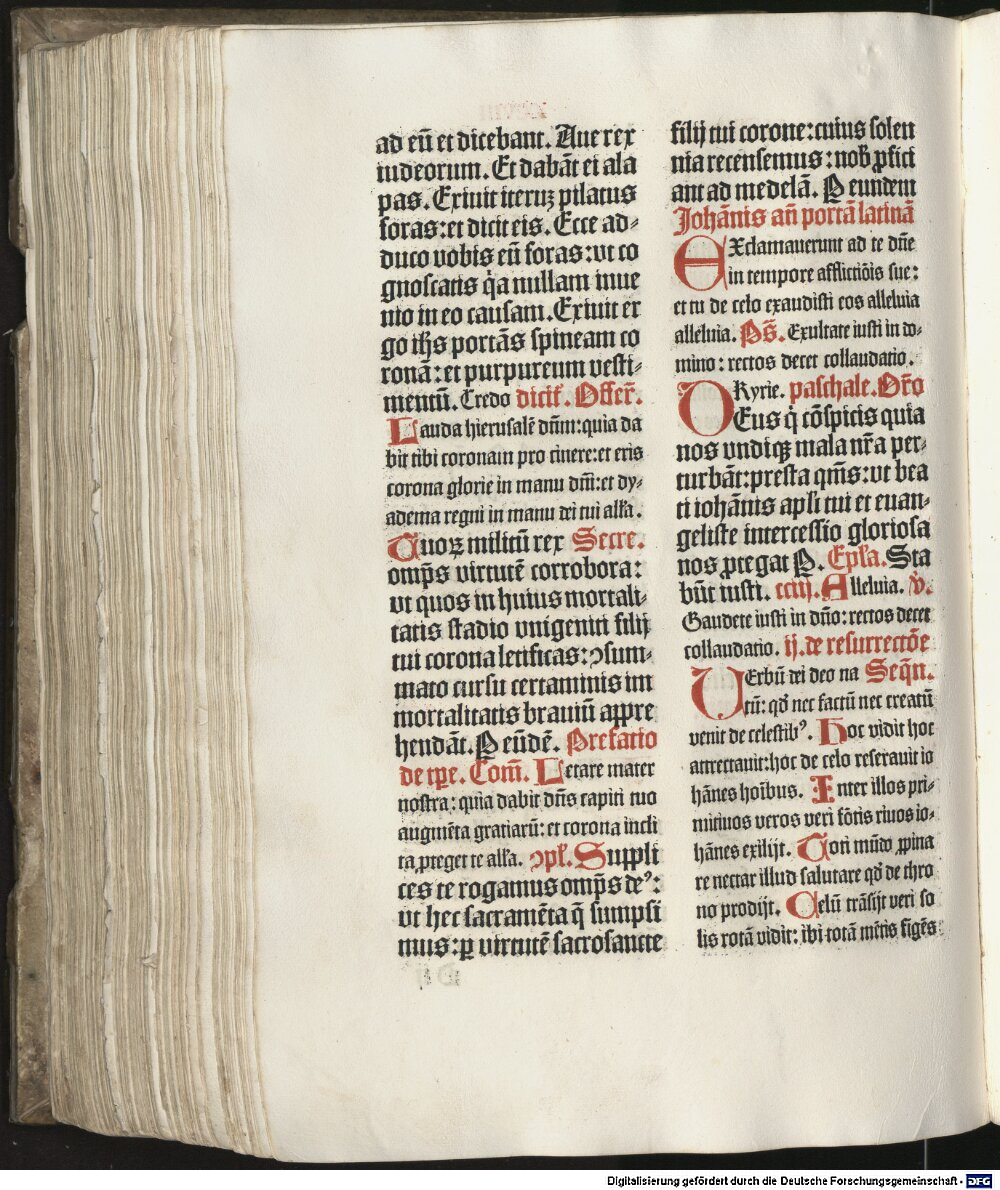 ad eū et dicebant. Aue rex
iudeorum. Et dabāt ei ala
pas. Exiuit iteruꝫ pilatus
foras: et dicit eis. Ecce ad⸗
duco vobis eū foras: vt co
gnoscatis q̇a nullam inue
nio in eo causam. Exiuit er
go ih̄s portās spineam co
ronā: et purpureum vesti⸗
mentū. Credo dicit͛. Offer̄.
Lauda hierusalē dn̄m: quia da
bit tibi coronam pro cinere: et eris
corona glorie in manu dn̄i: et dy⸗
adema regni in manu dei tui all'a.
Quoꝝ militū rex Secre.
omp̄s virtutē corrobora:
vt quos in huius mortali⸗
tatis stadio vnigeniti filij
tui corona letificas: ꝯsum⸗
mato cursu certaminis im
mortalitatis brauiū appre
hendāt. P eūdē. Prefatio
de tp̄e. Com̄. Letare mater
nostra: quia dabit dn̄s capiti tuo
augmēta gratiarū: et corona incli
ta ꝓteget te all'a. ꝯpl̄. Suppli
ces te rogamus omp̄s deꝰ:
vt hec sacramēta q̄ sumpsi
mus: ꝑ virtutē sacrosancte
filij tui corone: cuius solen
nia recensemus: nob̄ ꝓfici
ant ad medelā. P eundem
Johānis an̄ portā latinā
EXclamauerunt ad te dn̄e
in tempore afflictiōis sue:
et tu de celo exaudisti eos alleluia
alleluia. Ps̄. Exultate iusti in do⸗
mino: rectos decet collaudatio.
Kyrie. paschale. Or̄o
DEus q̇ cōspicis quia
nos vndiqꝫ mala nr̄a per⸗
turbāt: presta qm̄s: vt bea
ti iohānis apl̄i tui et euan⸗
geliste intercessio gloriosa
nos ꝓtegat P. Epl̄a. Sta
būt iusti. cciij. Alleluia. v̇.
Gaudete iusti in dn̄o: rectos decet
collaudatio. ij. de resurrectōe
VErbū dei deo na Seqn̄.
tū: qd̄ nec factū nec creatū
venit de celestibꝰ. Hoc vidit hoc
attrectauit: hoc de celo reserauit io
hānes hoībus. Inter illos pri⸗
mitiuos veros veri fōtis riuos io⸗
hānes exilijt. Tori mūdo ꝓpina
re nectar illud salutare qd̄ de thro
no prodijt. Celū trāsijt veri so
lis rotā vidit: ibi totā mētis figēs
Digitalisierung gefördert durch die Deutsche Forschungsgemeinschaft - DFG